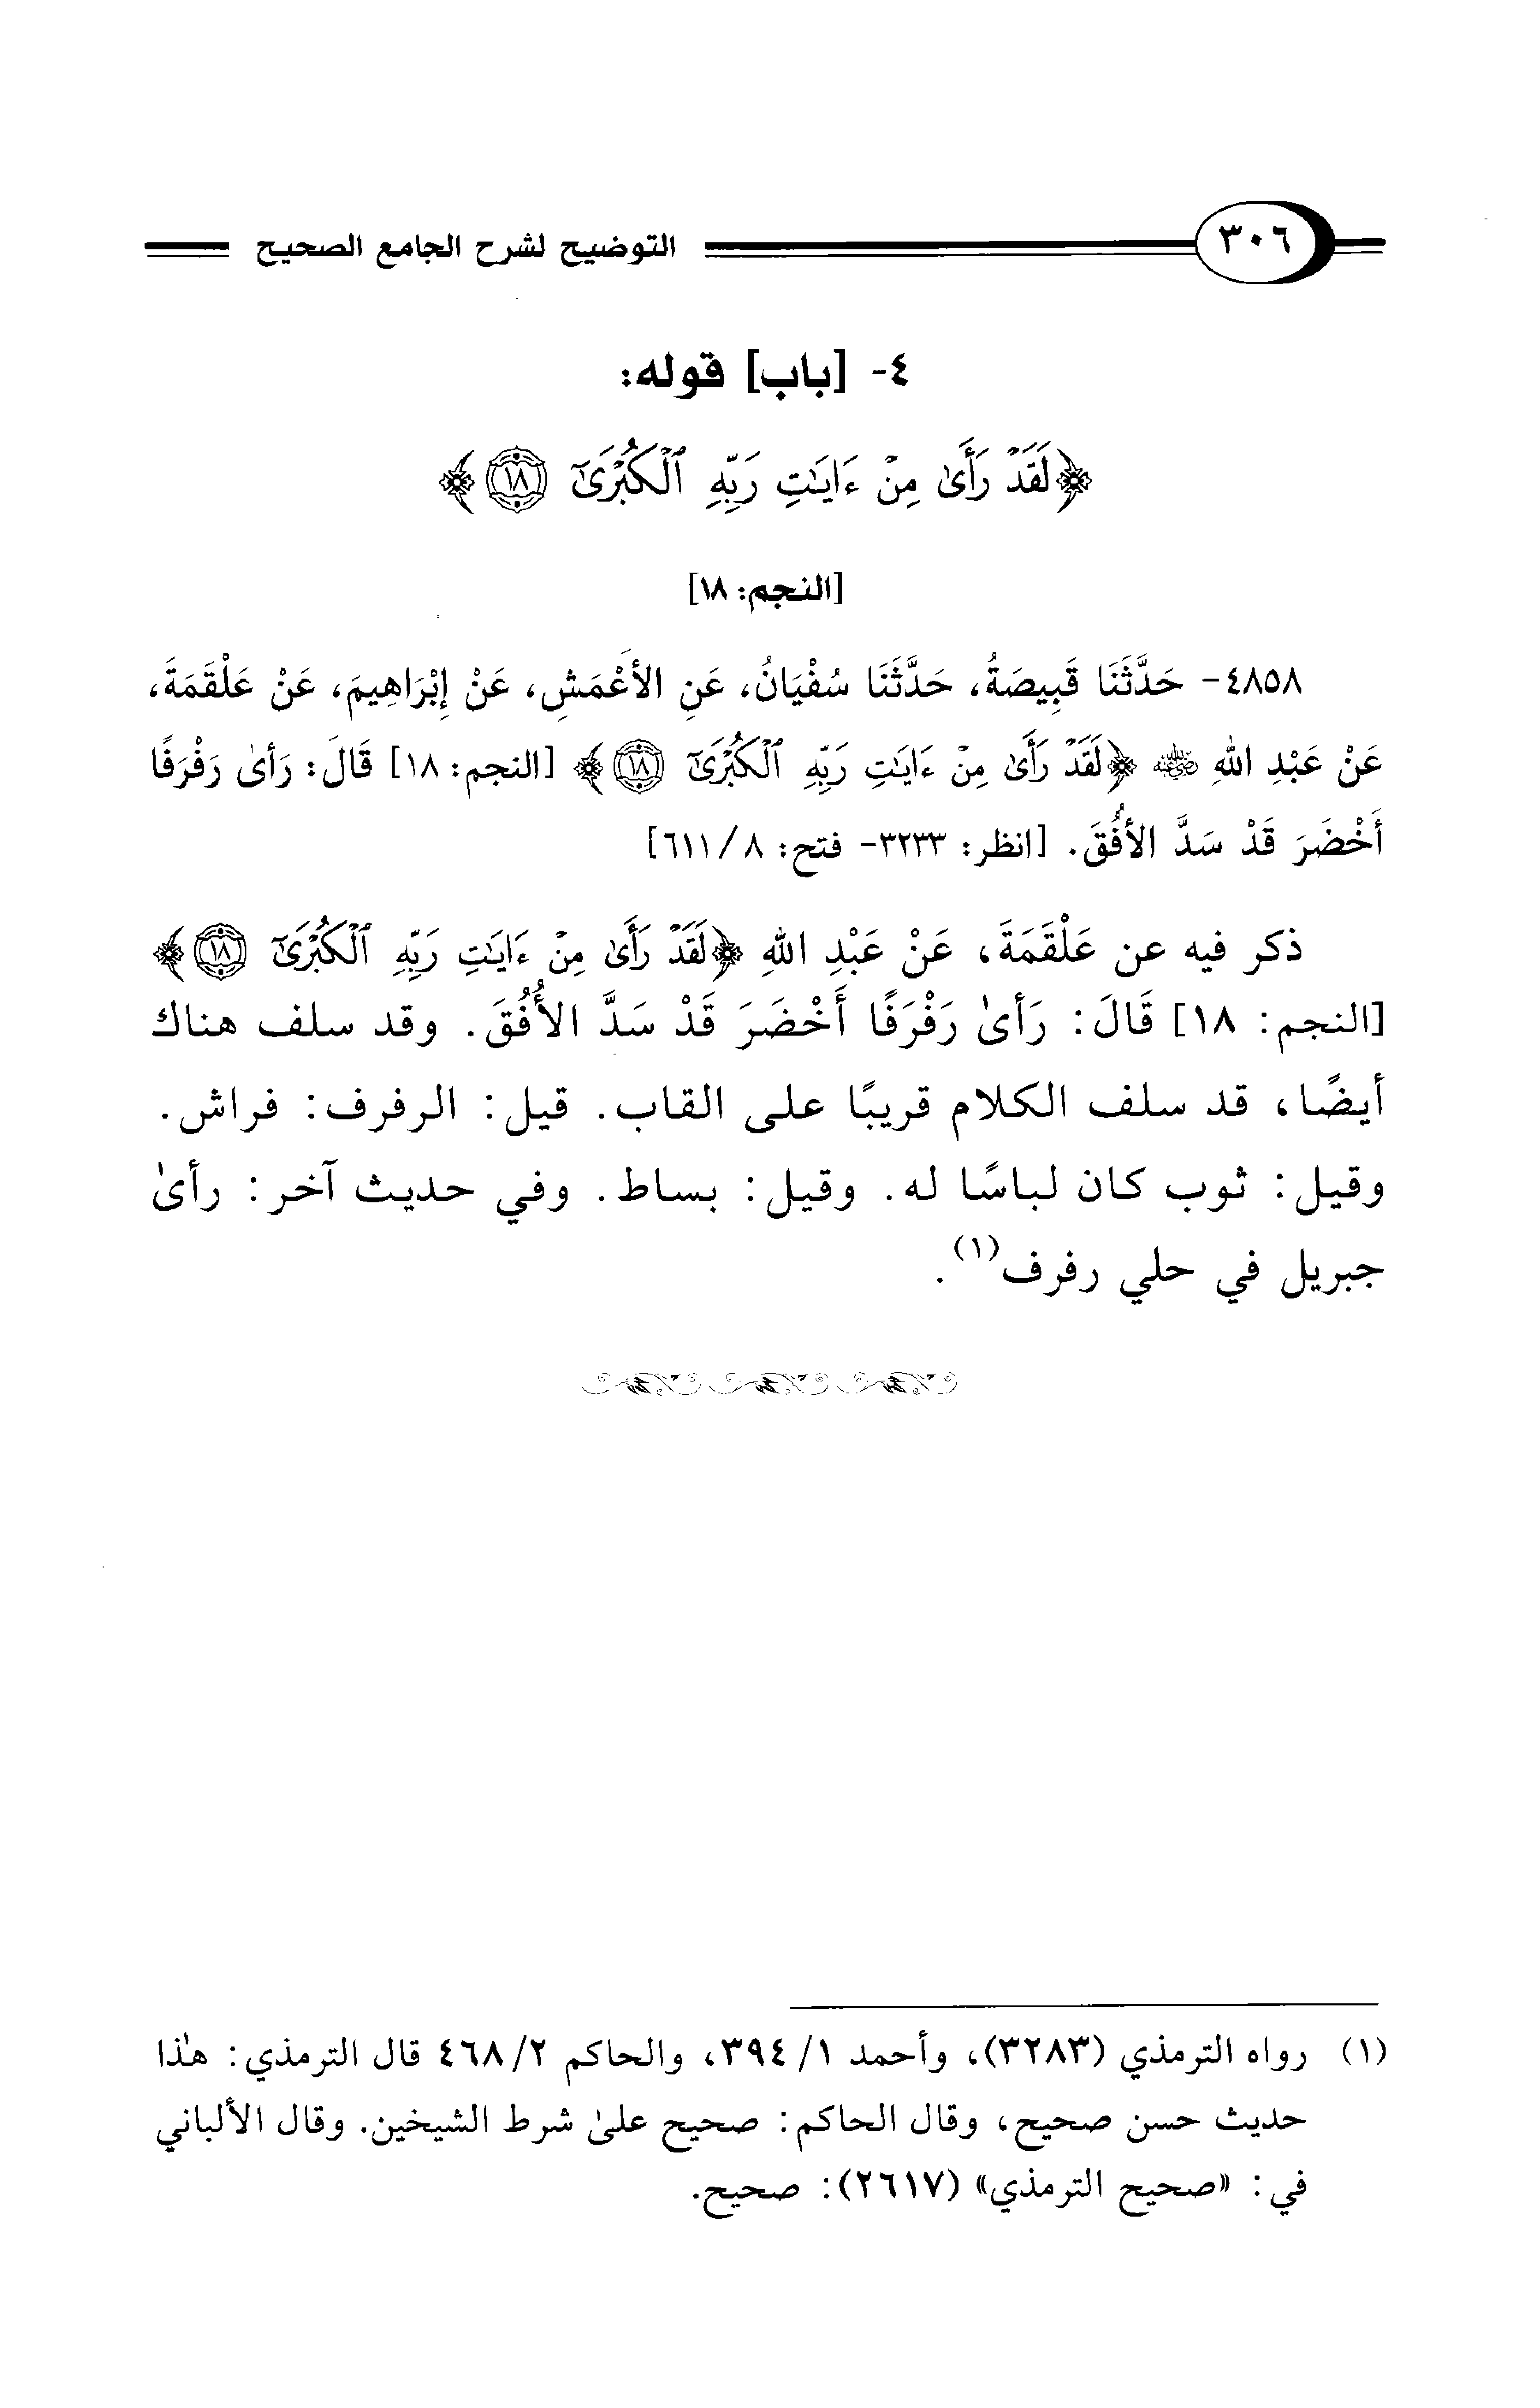 ٣٠٦ التوضيح لشرح الجامع الصحيح
٤- [باب] قوله:
﴿لَقَدْ رَأَىٰ مِنْ ءَايَٰتِ رَبِّهِ ٱلْكُبْرَىٰٓ ١٨﴾
[النجم: ١٨]
٤٨٥٨- حَدَّثَنَا قَبِيصَةُ، حَدَّثَنَا سُفْيَانُ، عَنِ الأَعْمَشِ، عَنْ إِبْرَاهِيمَ، عَنْ عَلْقَمَةَ،
عَنْ عَبْدِ اللهِ رضي الله عنه ﴿لَقَدْ رَأَىٰ مِنْ ءَايَٰتِ رَبِّهِ ٱلْكُبْرَىٰٓ ١٨﴾ [النجم: ١٨] قَالَ: رَأىٰ رَفْرَفًا
أَخْضَرَ قَدْ سَدَّ الأُفُقَ. [انظر: ٣٢٣٣- فتح: ٨/ ٦١١]
ذكر فيه عن عَلْقَمَةَ، عَنْ عَبْدِ اللهِ ﴿لَقَدْ رَأَىٰ مِنْ ءَايَٰتِ رَبِّهِ ٱلْكُبْرَىٰٓ ١٨﴾
[النجم: ١٨] قَالَ: رَأىٰ رَفْرَفًا أَخْضَرَ قَدْ سَدَّ الأُفُقَ. وقد سلف هناك
أيضًا، قد سلف الكلام قريبًا على القاب. قيل: الرفرف: فراش.
وقيل: ثوب كان لباسًا له. وقيل: بساط. وفي حديث آخر: رأىٰ
جبريل في حلي رفرف(١).
(١) رواه الترمذي (٣٢٨٣)، وأحمد ١/ ٣٩٤، والحاكم ٢/ ٤٦٨ قال الترمذي: هٰذا
حديث حسن صحيح، وقال الحاكم: صحيح علىٰ شرط الشيخين. وقال الألباني
في: «صحيح الترمذي» (٢٦١٧): صحيح.